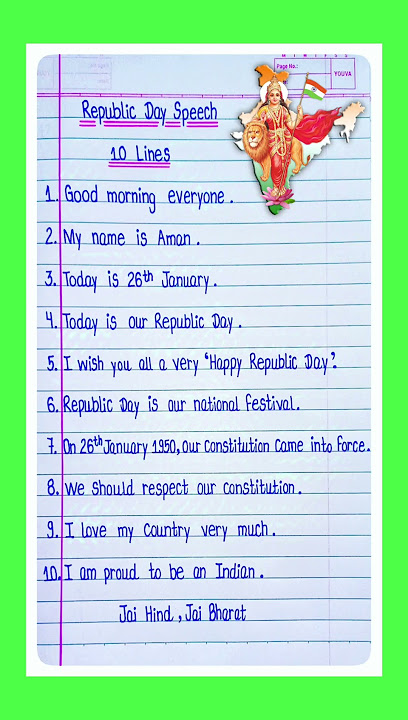 Page No.:
YOUVA
Republic Day Speech
10 Lines
1. Good morning everyone.
2. My name is Aman.
3. Today is 26th January.
4. Today is our Republic Day.
5. I wish you all a very 'Happy Republic Day'.
6. Republic Day is our national festival.
7. On 26th January 1950, Our Constitution Came into force.
8. We should respect our constitution.
9. I love my Country very much.
10. I am proud to be an Indian.
Jai Hind, Jai Bharat